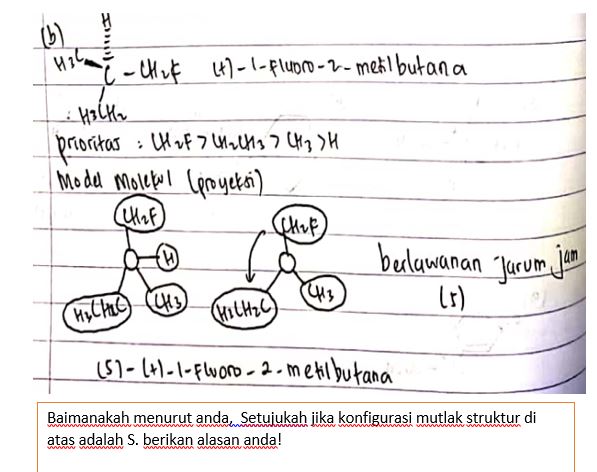 (b)
H
H3C
C - CH2F (+)-1-fluoro-2-metilbutana
: H3CH2
prioritas : CH2F > CH2CH3 > CH3 > H
Model Molekul (proyeksi)
CH2F
CH2F
H
H3CH2C CH3
H3CH2C CH3
berlawanan jarum jam
(s)
(S)-(+)-1-Fluoro-2-metilbutana
Baimanakah menurut anda, Setujukah jika konfigurasi mutlak struktur di
atas adalah S. berikan alasan anda!